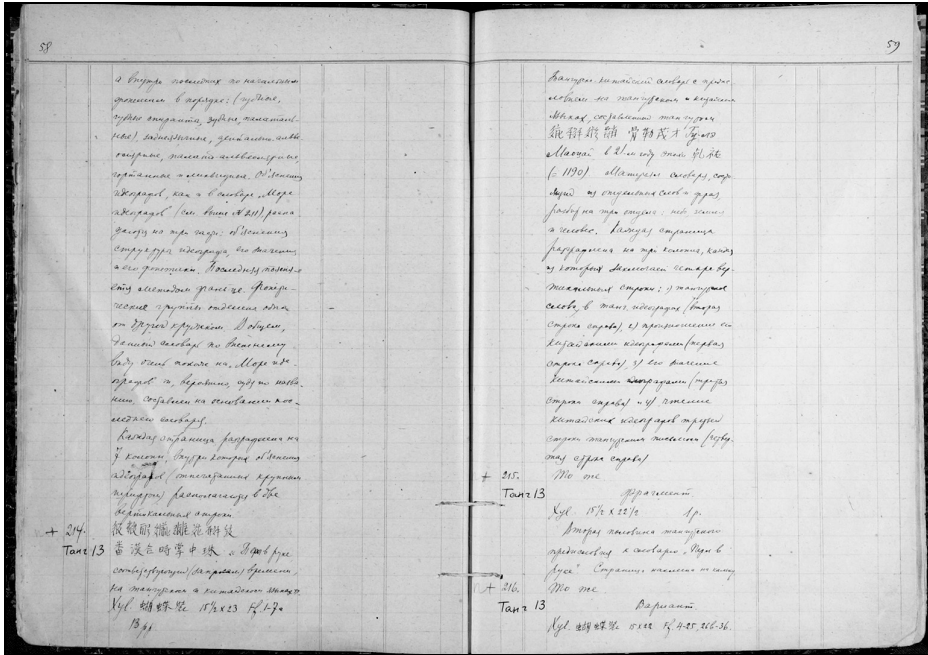 58
а внутри последних по начальным
фонемам в порядке: (губные,
губные спиранты, зубные, палаталь-
ные), заднеязычные, дентально-альве-
олярные, палато-альвеолярные,
гортанные и ликвидные. Объяснения
идеографов, как и в словаре „Море
идеографов" (см. выше №211) распа-
даются на три части: объяснения
структуры идеографа, его значения
и его фонетики. Последняя поясня-
ется методом фань-це. Фонети-
ческие группы отделены одна
от другой кружком. В общем,
данный словарь по внешнему
виду очень похож на „Море иде-
ографов" и, вероятно, судя по назва-
нию, составлен на основании пос-
леднего словаря.
Каждая страница разграфлена на
7 колонок, внутри которых объяснения
идеографов (отпечатанных крупным
шрифтом) располагаются в две
вертикальных строки.
+ 214.
Танг 13 番漢合時掌中珠 „Перл в руке
соответствующий (запросам) времени,
на тангутском и китайском языках".
Xyl. 蝴蝶裝 15½ x 23 Ff. 1-7
13 pp.
59
Тангутско-китайский словарь с преди-
словием на тангутском и китайском
языках, составленный тангутом
骨勒茂才 Гу-лэ
Маоцай в 21-м году эпохи 乾祐
(= 1190). Материал словаря, состо-
ящий из отдельных слов и фраз,
разбит на три отдела: небо, земля
и человек. Каждая страница
разграфлена на три колонки, каждая
из которых заключает четыре вер-
тикальных строки: 1) тангутское
слово в танг. идеографах (вторая
строка справа), 2) произношение его
китайскими идеографами (первая
строка справа), 3) его значение
китайскими идеографами (третья
строка справа) и 4) чтение
китайских идеографов третьей
строки тангутским письмом (четвер-
тая строка справа)
+ 215. То же
Танг 13 Фрагмент.
Xyl. 15½ x 22½ 1 p.
Вторая половина тангутского
предисловия к словарю „Перл в
руке". Страница наклеена на
+ 216. То же.
Танг 13 Вариант.
Xyl. 蝴蝶裝 15x22 Ff. 4-25, 26b-36.